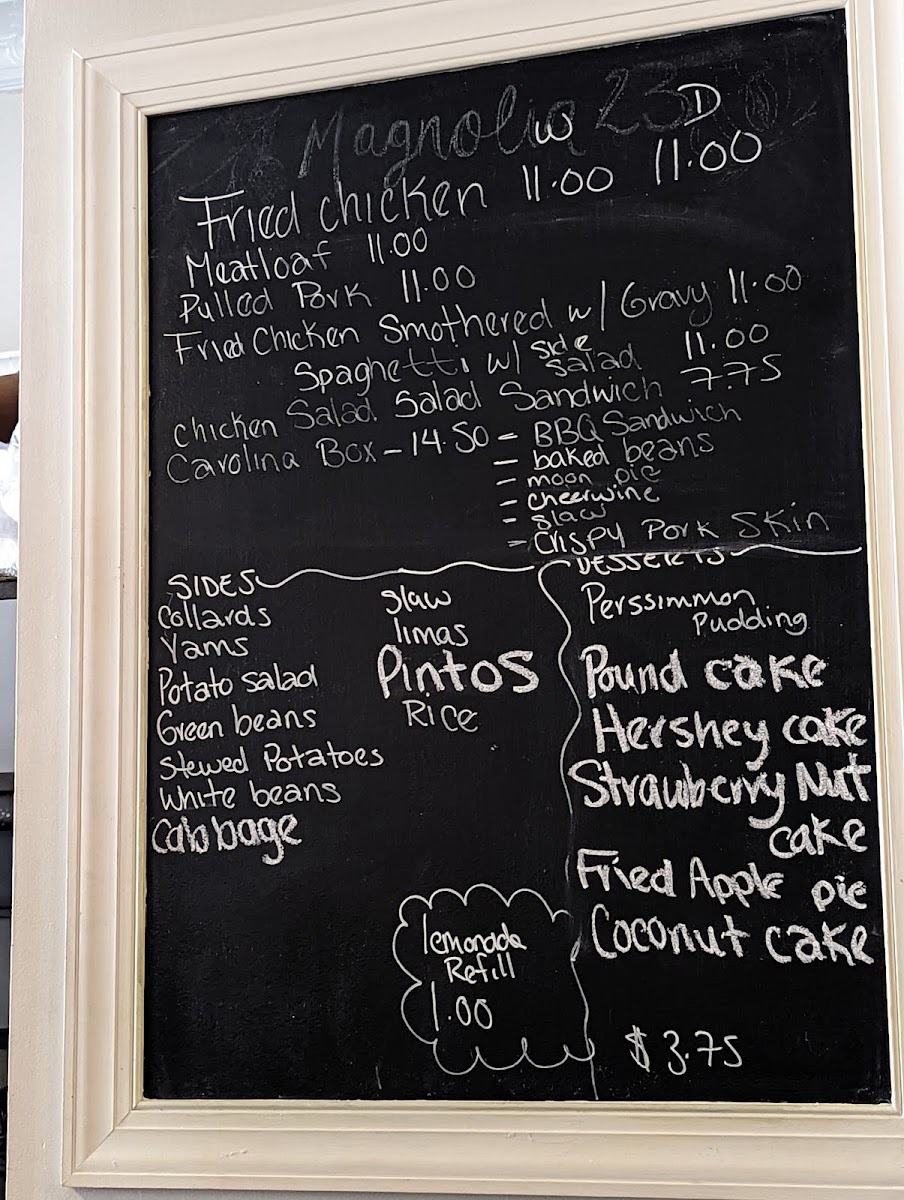 Magnolia 23
W D
Fried chicken 11.00 11.00
Meatloaf 11.00
Pulled Pork 11.00
Fried Chicken Smothered w/ Gravy 11.00
Spaghetti w/ side salad 11.00
Chicken Salad Salad Sandwich 7.75
Carolina Box - 14.50 - BBQ Sandwich
- baked beans
- moon pie
- cheerwine
- slaw
- Crispy Pork Skin
SIDES
Collards
Yams
Potato salad
Green beans
Stewed Potatoes
White beans
Cabbage
slaw
limas
Pintos
Rice
lemonade
Refill
1.00
DESSERTS
Perssimmon
Pudding
Pound cake
Hershey cake
Strawberry Nut
cake
Fried Apple pie
Coconut cake
$3.75